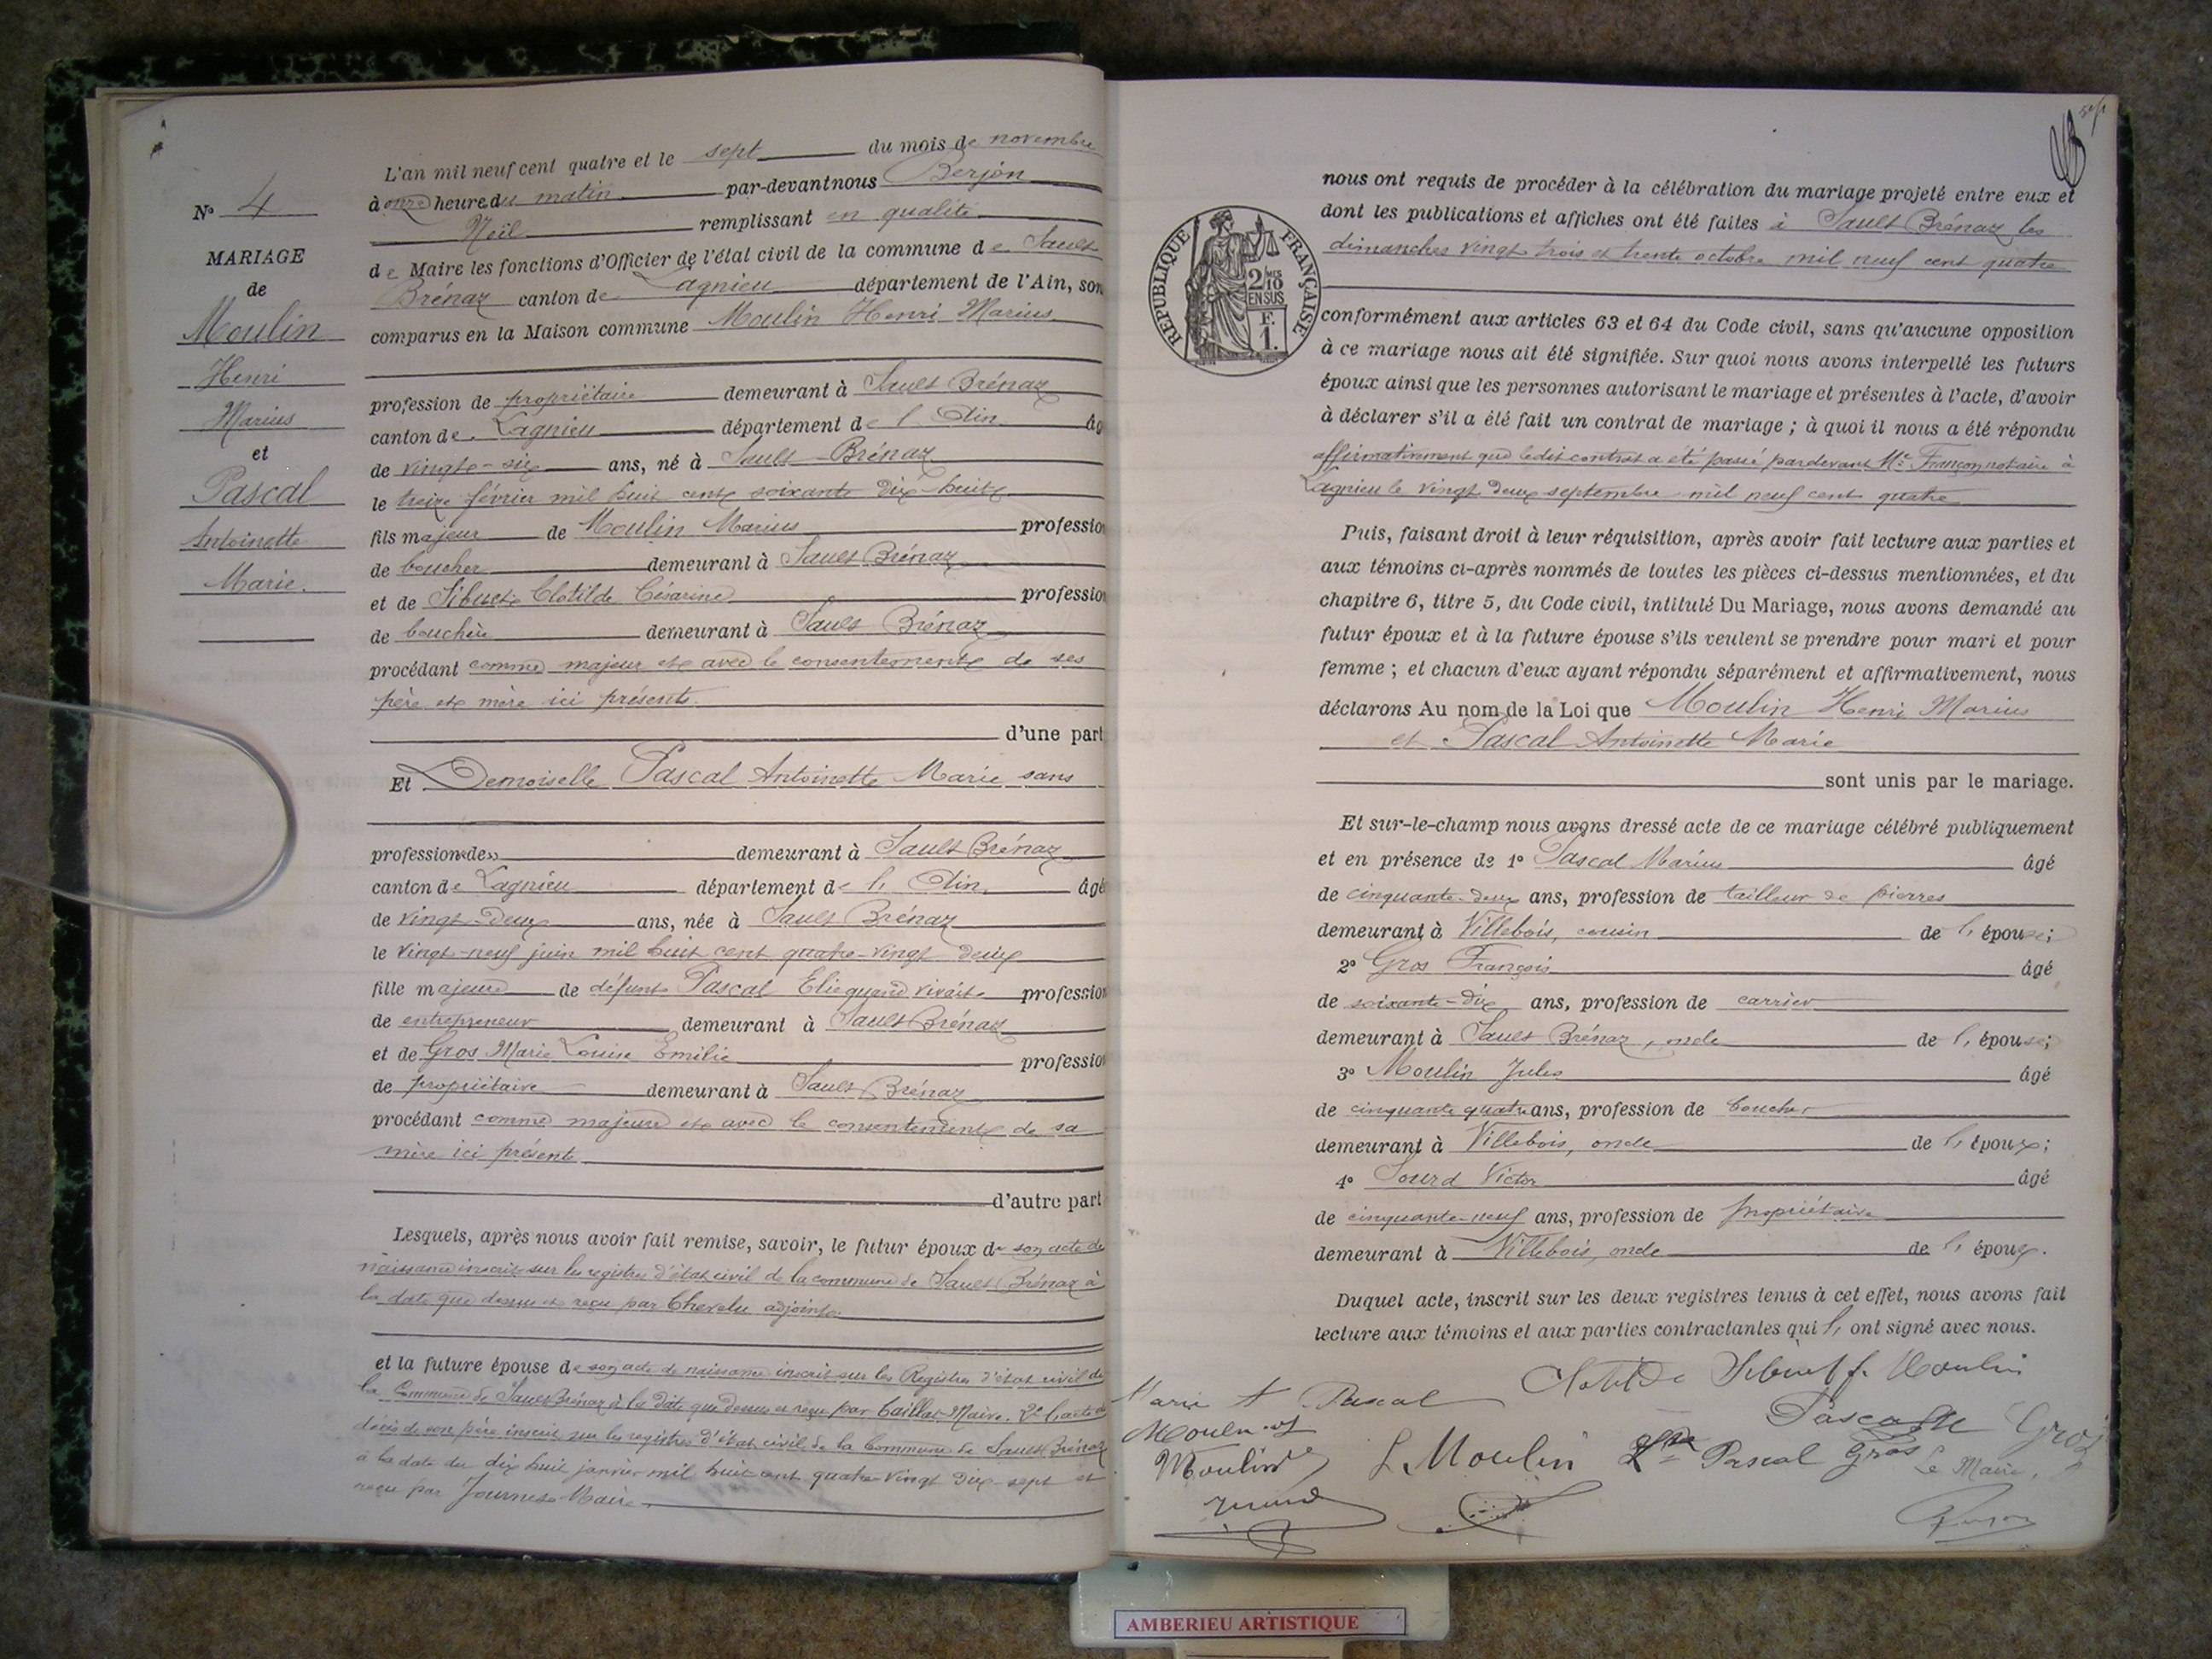 N° 4
MARIAGE
de
Moulin
Henri
Marius
et
Pascal
Antoinette
Marie.
L'an mil neuf cent quatre et le sept du mois de novembre
à onze heure du matin par-devant nous Berjon
Noël remplissant en qualité
de Maire les fonctions d'Officier de l'état civil de la commune de Sault
Brénaz canton de Lagnieu département de l'Ain, son
comparus en la Maison commune Moulin Henri Marius
profession de propriétaire demeurant à Sault Brénaz
canton de Lagnieu département de l'Ain âg
de vingt-six ans, né à Sault-Brénaz
le treize février mil huit cent soixante dix-huit
fils majeur de Moulin Marius profession
de boucher demeurant à Sault Brénaz
et de Sibuet Clotilde Césarine profession
de bouchère demeurant à Sault Brénaz
procédant comme majeur et avec le consentement de ses
père et mère ici présents.
d'une part
Et Demoiselle Pascal Antoinette Marie sans
profession «de» demeurant à Sault Brénaz
canton de Lagnieu département de l'Ain. âgé
de vingt-deux ans, née à Sault Brénaz
le vingt-neuf juin mil huit cent quatre-vingt deux
fille majeure de défunt Pascal Elie quand vivait profession
de entrepreneur demeurant à Sault Brénaz
et de Gros Marie Louise Emilie profession
de propriétaire demeurant à Sault Brénaz
procédant comme majeure et avec le consentement de sa
mère ici présente
d'autre part
Lesquels, après nous avoir fait remise, savoir, le futur époux de son acte de
naissance inscrit sur les registres d'état civil de la commune de Sault Brénaz à
la date que dessus et reçu par Chevelu adjoint.
et la future épouse de son acte de naissance inscrit sur les Registres d'état civil de
la Commune de Sault Brénaz à la date que dessus et reçu par Caillat Maire. 2° l'acte de
décès de son père inscrit sur les registres d'état civil de la Commune de Sault Brénaz
à la date du dix huit janvier mil huit cent quatre-vingt dix-sept et
reçu par Maire.
REPUBLIQUE FRANÇAISE
2/10
EN SUS
F.
1.
nous ont requis de procéder à la célébration du mariage projeté entre eux et
dont les publications et affiches ont été faites à Sault Brénaz les
dimanches vingt trois et trente octobre mil neuf cent quatre
conformément aux articles 63 et 64 du Code civil, sans qu'aucune opposition
à ce mariage nous ait été signifiée. Sur quoi nous avons interpellé les futurs
époux ainsi que les personnes autorisant le mariage et présentes à l'acte, d'avoir
à déclarer s'il a été fait un contrat de mariage ; à quoi il nous a été répondu
affirmativement que ledit contrat a été passé pardevant Me Françon notaire à
Lagnieu le vingt deux septembre mil neuf cent quatre
Puis, faisant droit à leur réquisition, après avoir fait lecture aux parties et
aux témoins ci-après nommés de toutes les pièces ci-dessus mentionnées, et du
chapitre 6, titre 5, du Code civil, intitulé Du Mariage, nous avons demandé au
futur époux et à la future épouse s'ils veulent se prendre pour mari et pour
femme ; et chacun d'eux ayant répondu séparément et affirmativement, nous
déclarons Au nom de la Loi que Moulin Henri Marius
et Pascal Antoinette Marie
sont unis par le mariage.
Et sur-le-champ nous avons dressé acte de ce mariage célébré publiquement
et en présence de 1° Pascal Marius âgé
de cinquante-deux ans, profession de tailleur de pierres
demeurant à Villebois, cousin de l'épouse;
2° Gros François âgé
de soixante-dix ans, profession de carrier
demeurant à Sault Brénaz, oncle de l'épouse;
3° Moulin Jules âgé
de cinquante quatre ans, profession de boucher
demeurant à Villebois, oncle de l'époux;
4° Sourd Victor âgé
de cinquante-neuf ans, profession de propriétaire
demeurant à Villebois, oncle de l'époux.
Duquel acte, inscrit sur les deux registres tenus à cet effet, nous avons fait
lecture aux témoins et aux parties contractantes qui l, ont signé avec nous.
Clotilde Sibuet f. Moulin
Marie A Pascal
Moulin
Gros
Moulin J. Moulin Pascal Gros Le Maire,
AMBERIEU ARTISTIQUE